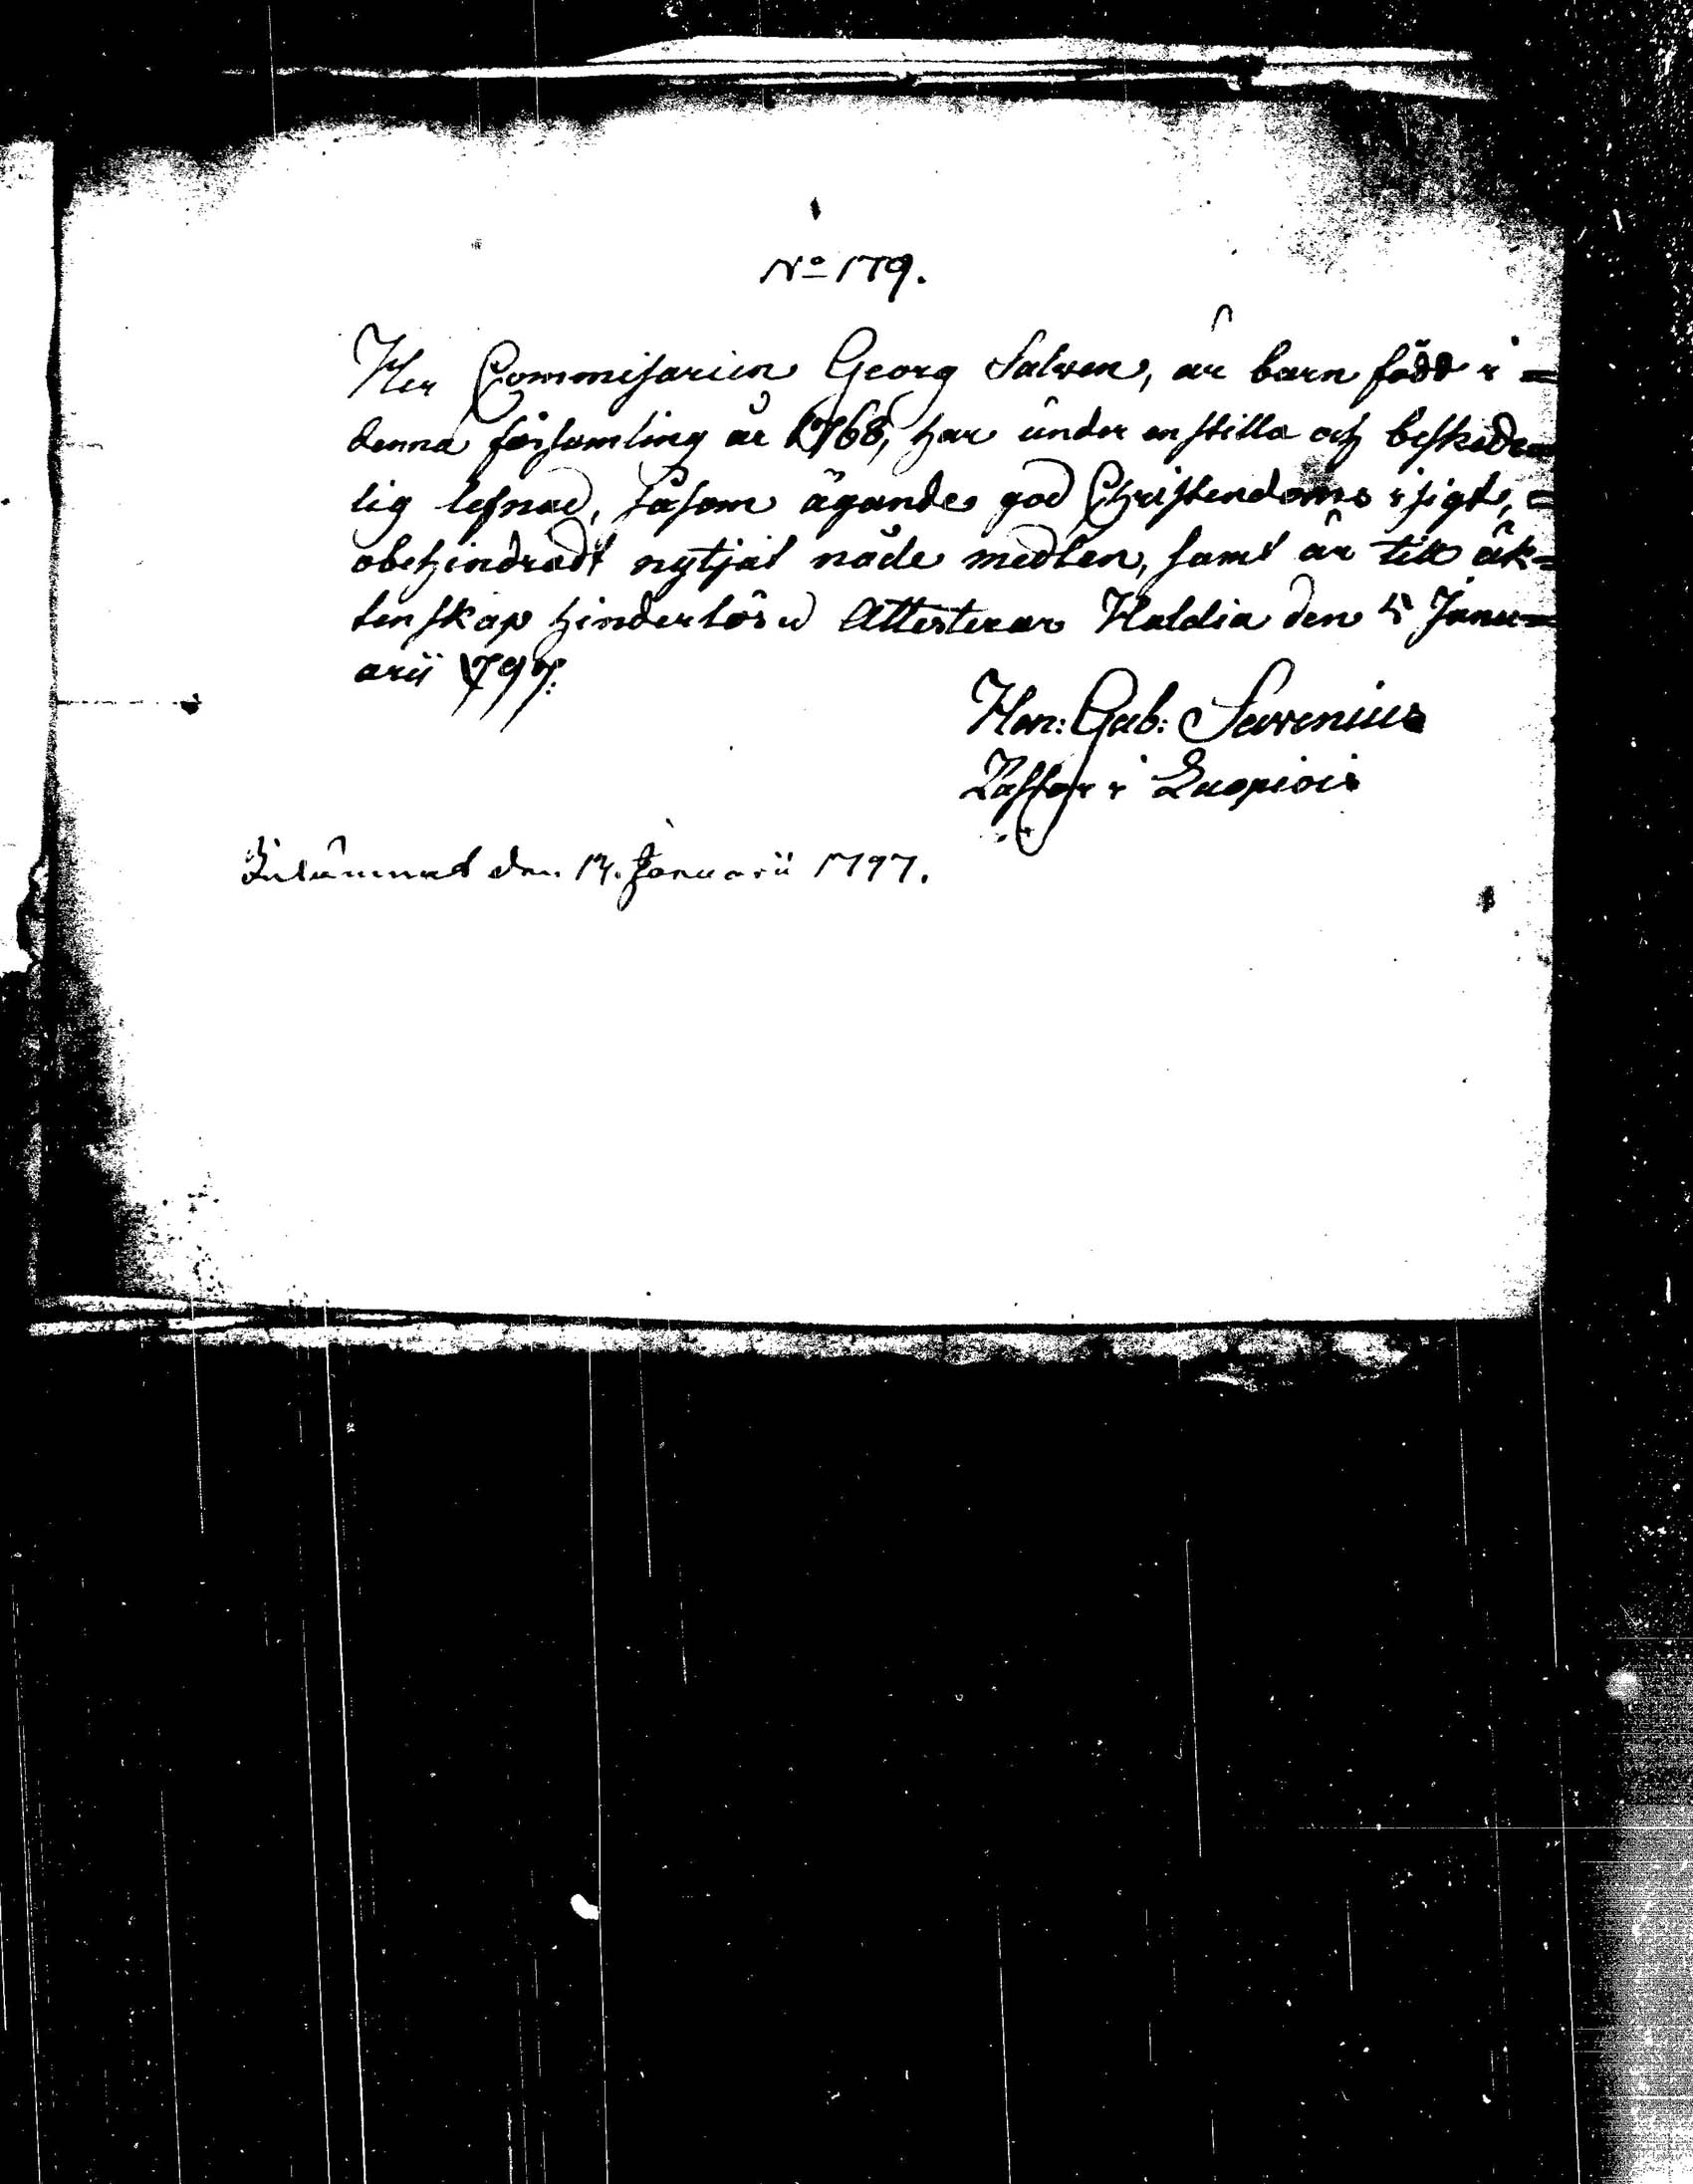 No 179.
Her Commisarien Georg Salven, är barn född i =
denna församling år 1768, har under en stilla och beskede=
lig lefnad, såsom ägande god Christendoms isigt, =
obehindradt nytjat nåde medlen, samt är till äk=
tenskap hinderlös; Attesterar Haldia den 5 Janu=
arii 1797.
Hen: Gab: Savenius
Pastor i Luopiois
Inlämnat den 14. Januarii 1797.